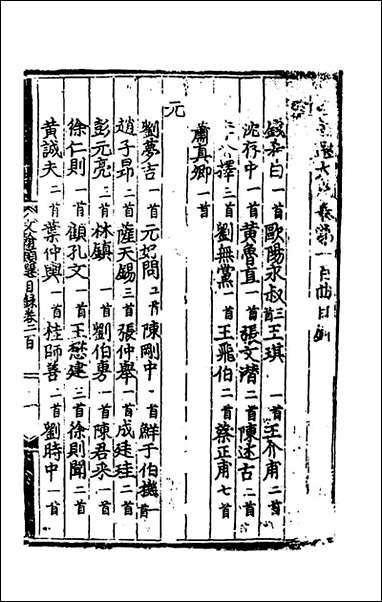 大 卷第一百四目錄
錢希白一首歐陽永叔三首王琪一首王介甫二首
沈存中一首黃魯直一首張文潛二首陳述古二首
擇三首劉無黨一首王飛伯二首蔡正甫七首
蕭真卿一首
元
劉夢吉一首元好問二首陳剛中一首鮮于伯機一首
趙子昂二首薩天錫三首張仲舉一首成廷珪二首
彭元亮二首林鎮一首劉伯 一首陳君采一首
徐仁則一首顧孔文一首王懋建三首徐則聞二首
黃誠夫二首葉仲輿一首桂師善二首劉時中一首
文翰類選目錄卷一百